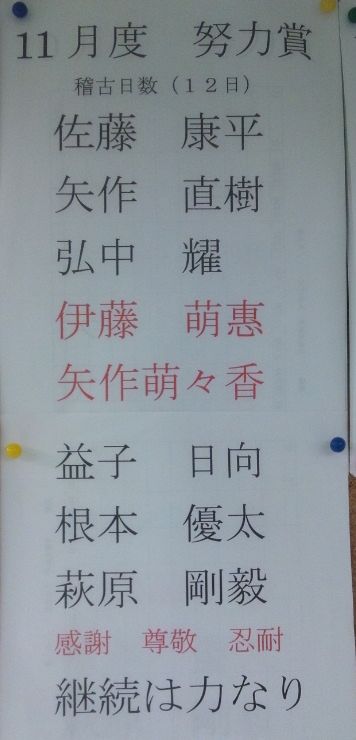 11月度　努力賞
稽古日数（１２日）
佐藤　康平
矢作　直樹
弘中　耀
伊藤　萌惠
矢作萌々香
益子　日向
根本　優太
萩原　剛毅
感謝　尊敬　忍耐
継続は力なり